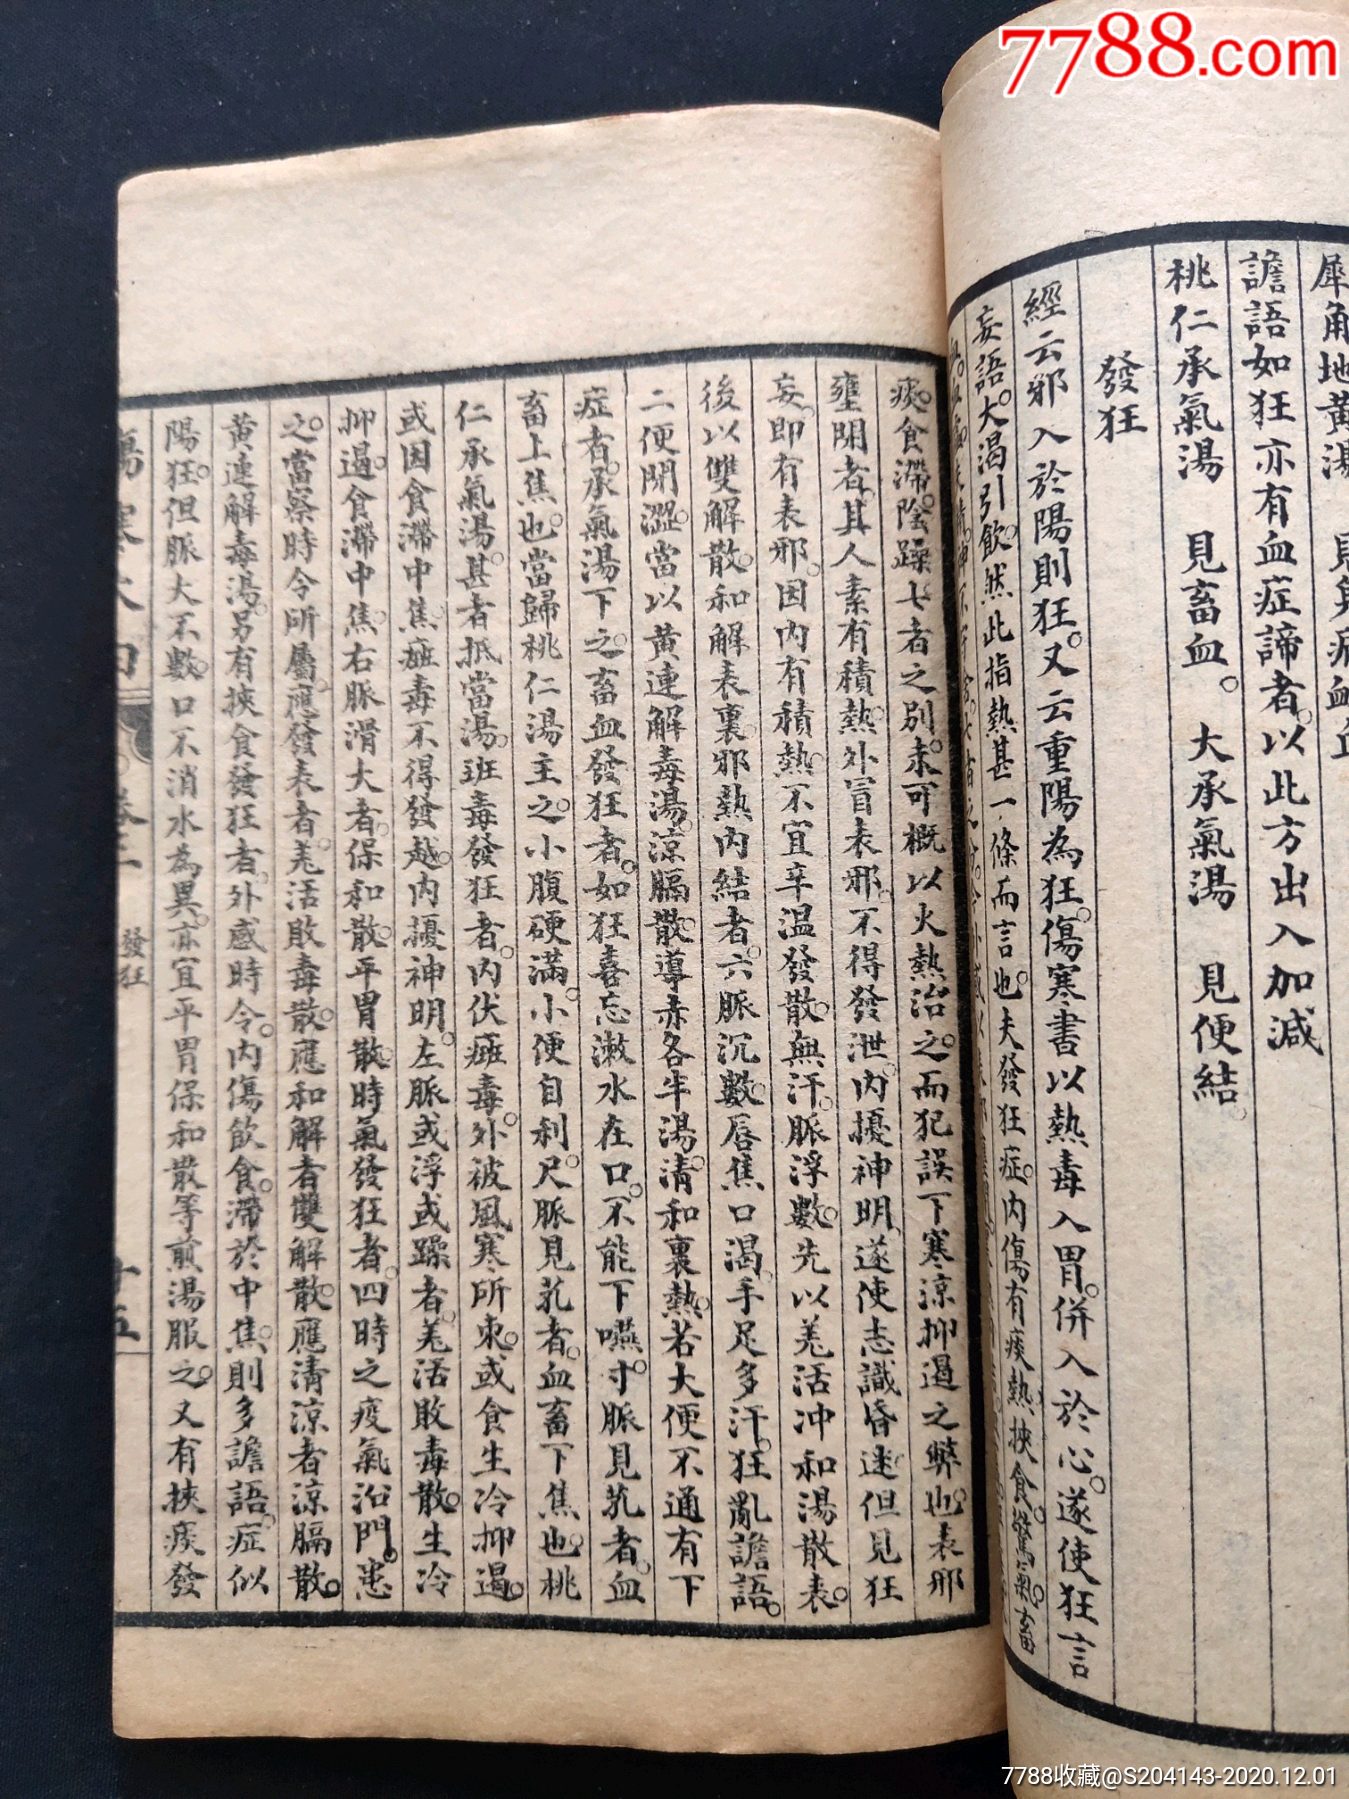 7788.com
犀角地黃湯
譫語如狂亦有血症諦者。以此方出入加減
桃仁承氣湯 見畜血。 大承氣湯 見便結。
發狂
經云邪入於陽則狂。又云重陽為狂。傷寒書以熱毒入胃。併入於心。遂使狂言
妄語。大渴引飲。然此指熱甚一條而言也。夫發狂症。內傷有痰熱。挾食。驚氣。畜
痰。食滯。陰躁七者之別。未可概以火熱治之。而犯誤下寒涼抑遏之弊也。表邪
壅閉者。其人素有積熱。外冒表邪。不得發泄。內擾神明。遂使志識昏迷。但見狂
妄。即有表邪。因內有積熱。不宜辛溫發散。無汗。脈浮數。先以羌活冲和湯散表。
後以雙解散。和解表裏。邪熱內結者。六脈沉數。唇焦口渴。手足多汗。狂亂譫語。
二便閉澀。當以黃連解毒湯。涼膈散。導赤各半湯。清和裏熱。若大便不通有下
症者。承氣湯下之。畜血發狂者。如狂喜忘。漱水在口。不能下嚥。寸脈見芤者。血
畜上焦也。當歸桃仁湯主之。小腹硬滿。小便自利。尺脈見芤者。血畜下焦也。桃
仁承氣湯。甚者抵當湯。班毒發狂者。內伏癍毒。外被風寒所束。或食生冷抑遏。
或因食滯中焦。癍毒不得發越。內擾神明。左脈或浮或躁者。羌活敗毒散。生冷
抑遏。食滯中焦。右脈滑大者。保和散。平胃散。時氣發狂者。四時之疫氣沿門。患
之。當察時令所屬。應發表者。羌活敗毒散。應和解者。雙解散。應清涼者。涼膈散。
黃連解毒湯。另有挾食發狂者。外感時令。內傷飲食。滯於中焦。則多譫語。症似
陽狂。但脈大不數。口不消水為異。亦宜平胃保和散等煎湯服之。又有挾痰發
傷寒大白
卷三
發狂
十五
7788收藏@S204143-2020.12.01